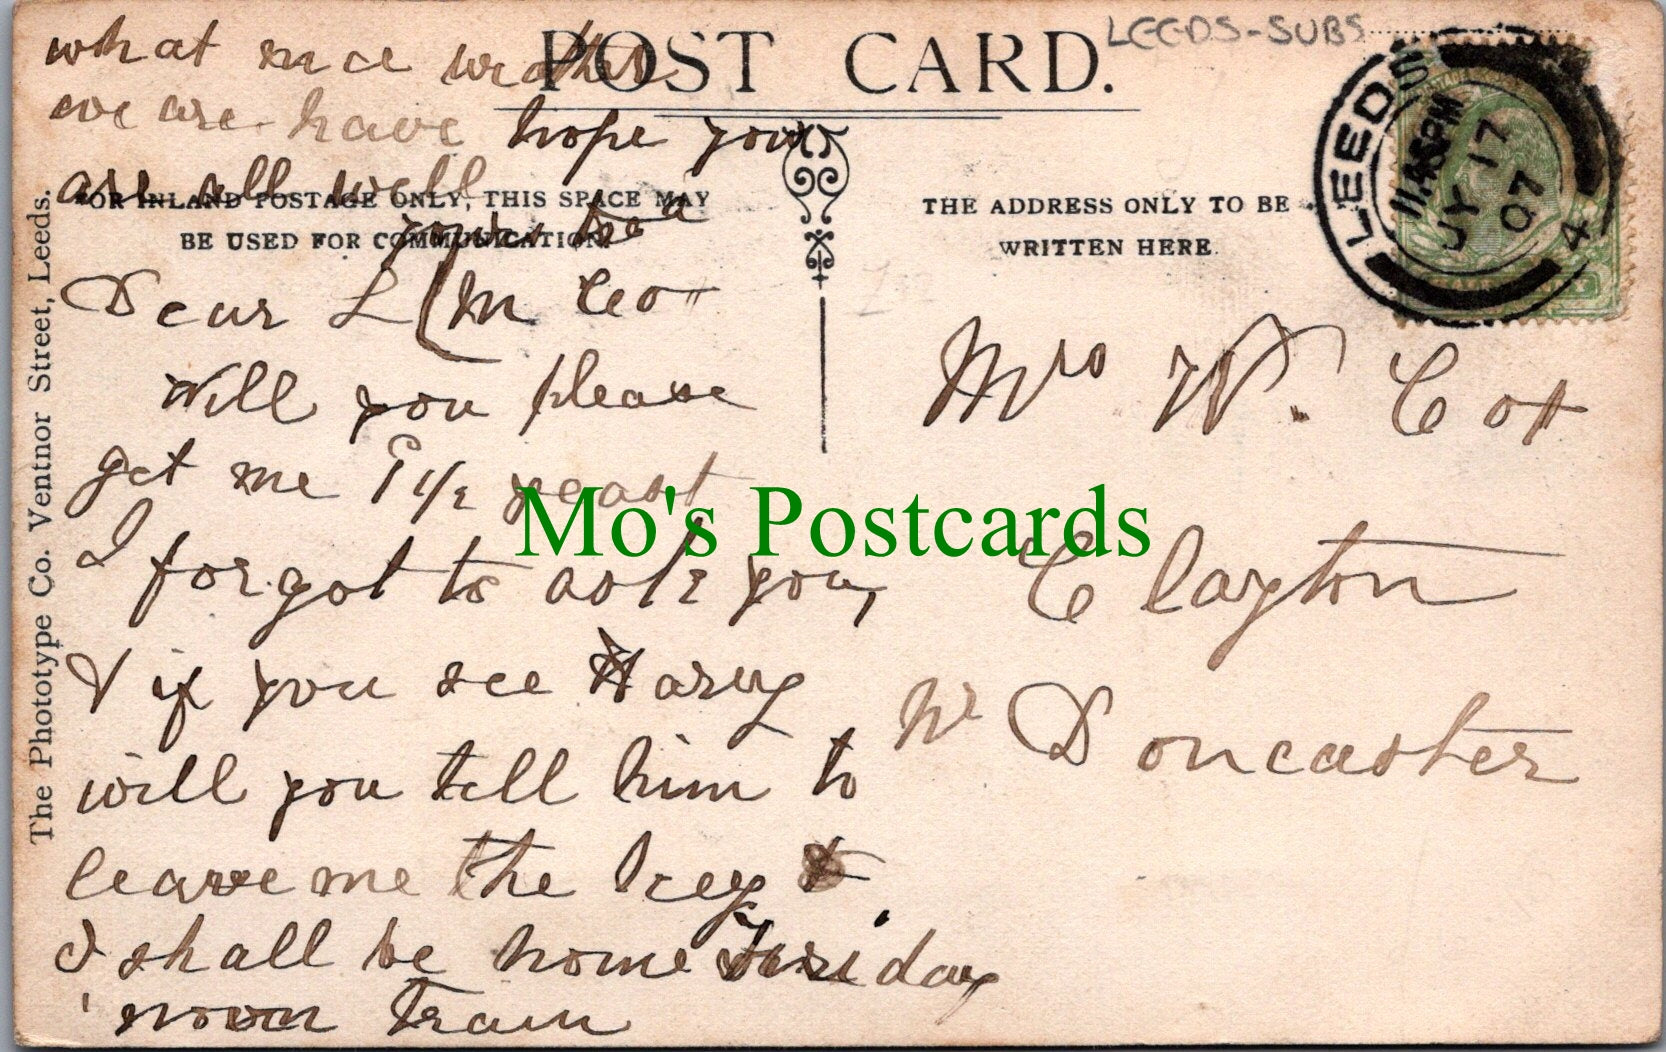 LEEDS-SUBS
POST CARD.
what nice wether
we are have hope you
are all well
yours tr
FOR INLAND POSTAGE ONLY, THIS SPACE MAY
BE USED FOR COMMUNICATION.
THE ADDRESS ONLY TO BE
WRITTEN HERE.
LEEDS
11.45PM
JY 17
07
4
The Phototype Co. Ventnor Street, Leeds.
Dear L M Cox
will you please
get me 1/2 yeast
I forgot to ask you,
& if you see Harry
will you tell him to
leave me the key
I shall be home Friday
noon train
Mrs W. Cox
Clayton
Nr Doncaster
Mo's Postcards